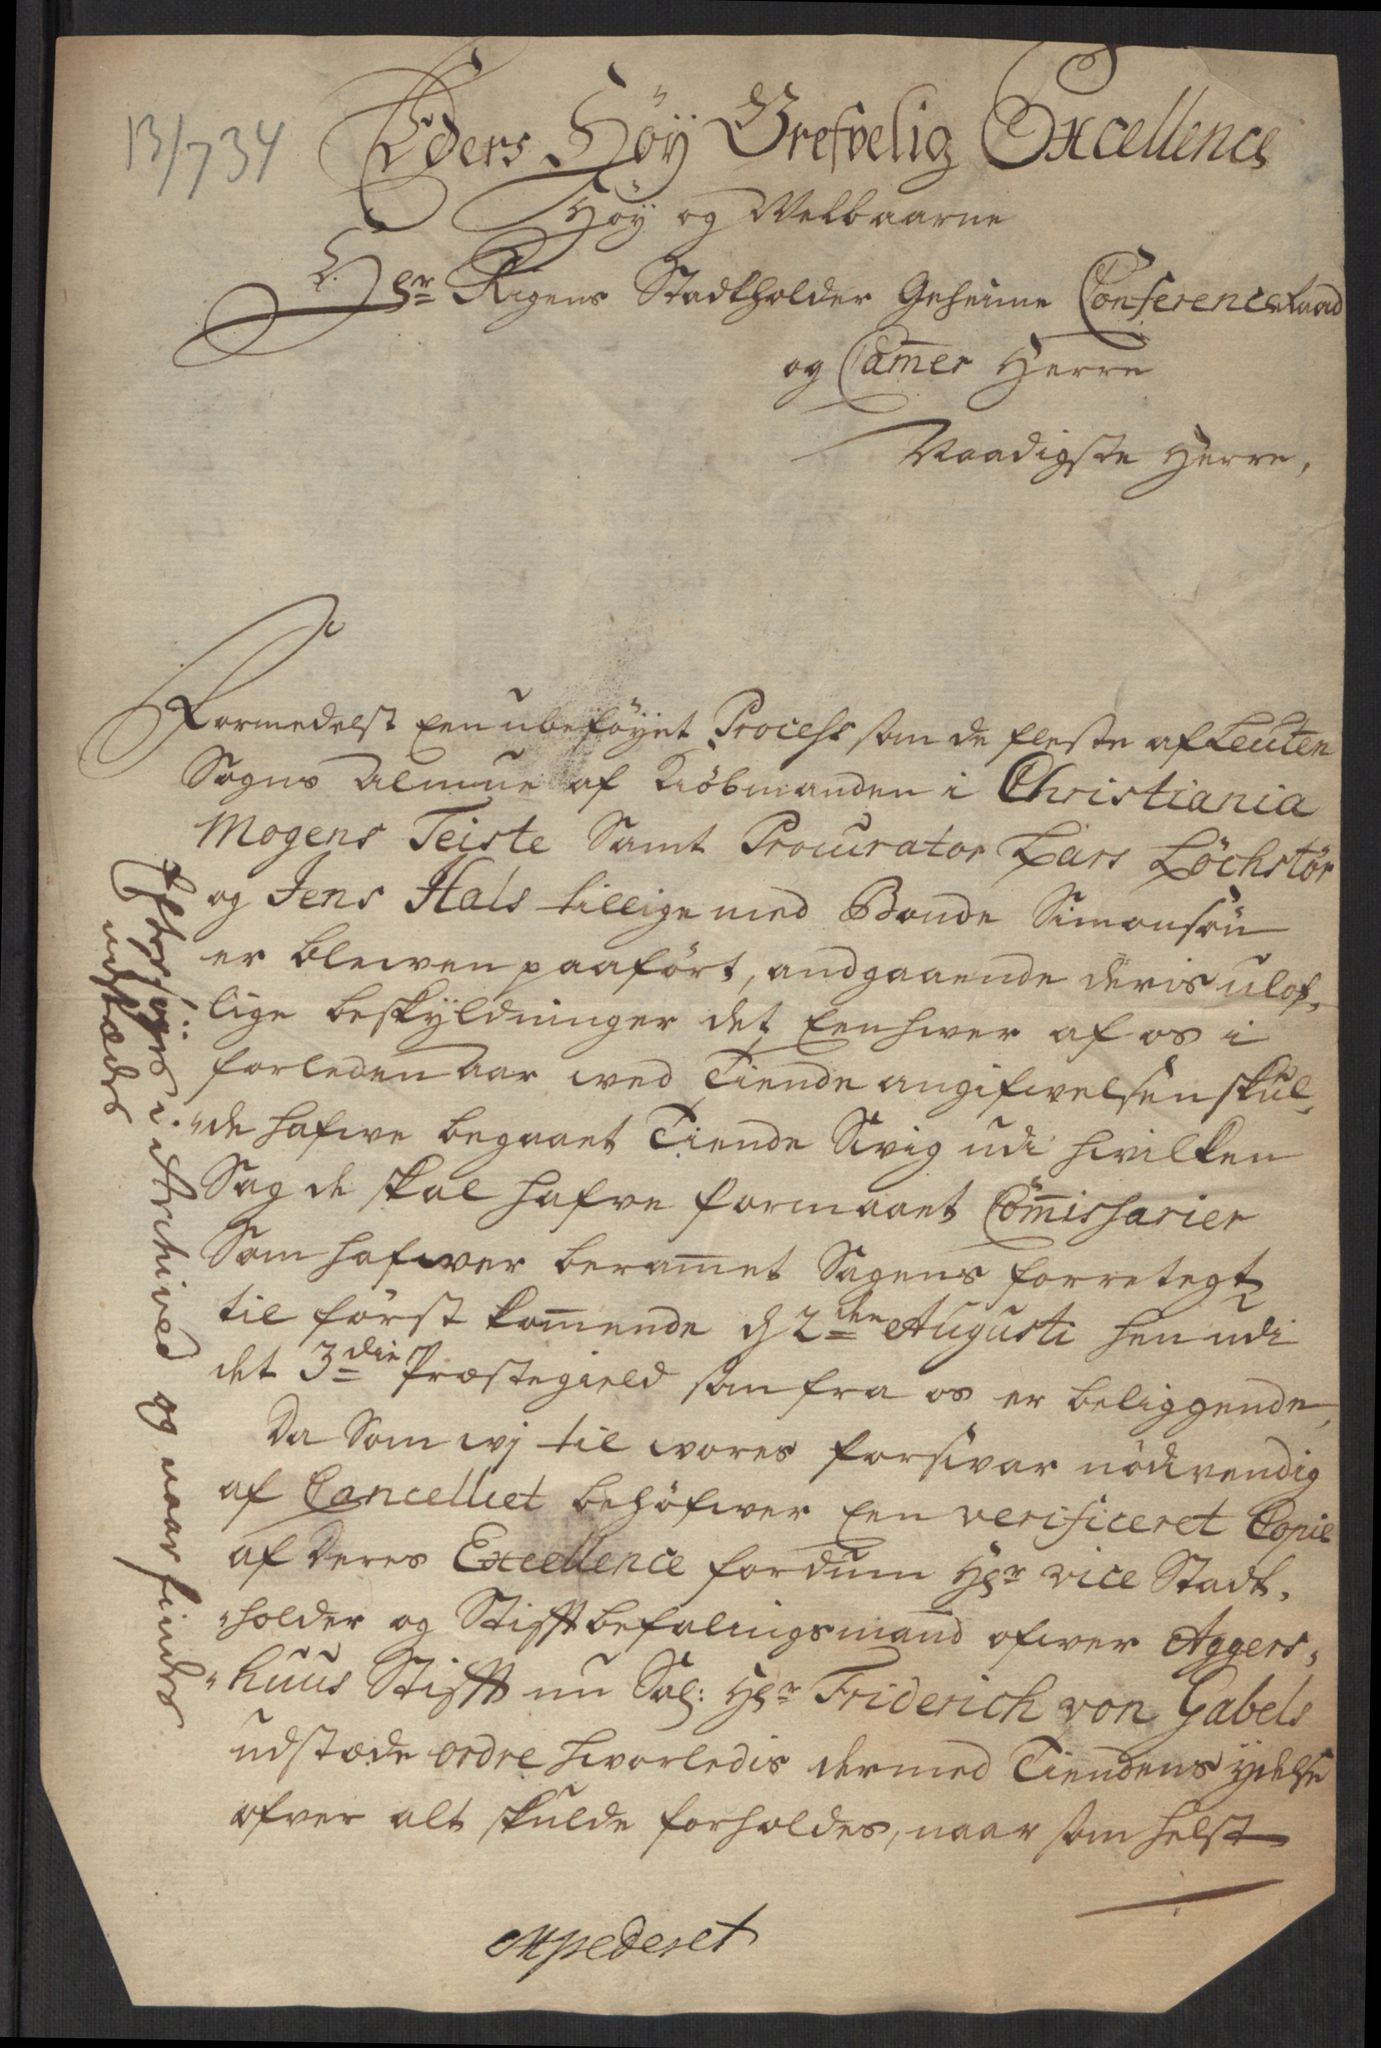 13/734
Eders Höÿ Grefvelig Excellence
Höÿ og Welbaarne
Hr Rigens Stadtholder Geheime Conference Raad
og Cam̄er Herre
Naadigste Herre,
Formedelst Een ubeföÿet Process som de fleste af Leuten
Sogns Almue af Kiöbmanden i Christiania
Mogens Teiste Samt Procurator Lars Löchstör
og Jens Hals tillige med Bonde Simonsön
er blewen paafört, andgaaende deris ulof-
lige beskÿldninger det Eenhwer af os i
forleden Aar wed Tiende angifwelsen skul-
de hafwe begaaet Tiende Svig udi hwilken
Sag de skal hafve formaaet Com̄issarier
Som hafwer beram̄et Sagens forretegt
til först kom̄ende d 2den Augusti hen udi
det 3die Præstegield som fra os er beliggende,
Da Som wj til wores forswar nödwendig
af Cancelliet behöfwer Een verificeret Copie
af Deres Excellence fordum Hr vice Stadt-
holder og Stifftbefalingsmand ofwer Aggers-
huus Stifft nu Sal: Hr Friderich von Gabels
udstæde ordre hworledis dermed Tiendens ÿdelse
ofver alt skulde forholdes, naar som helst
expederet
Eftersöges i Archived og naar findes
udstædes